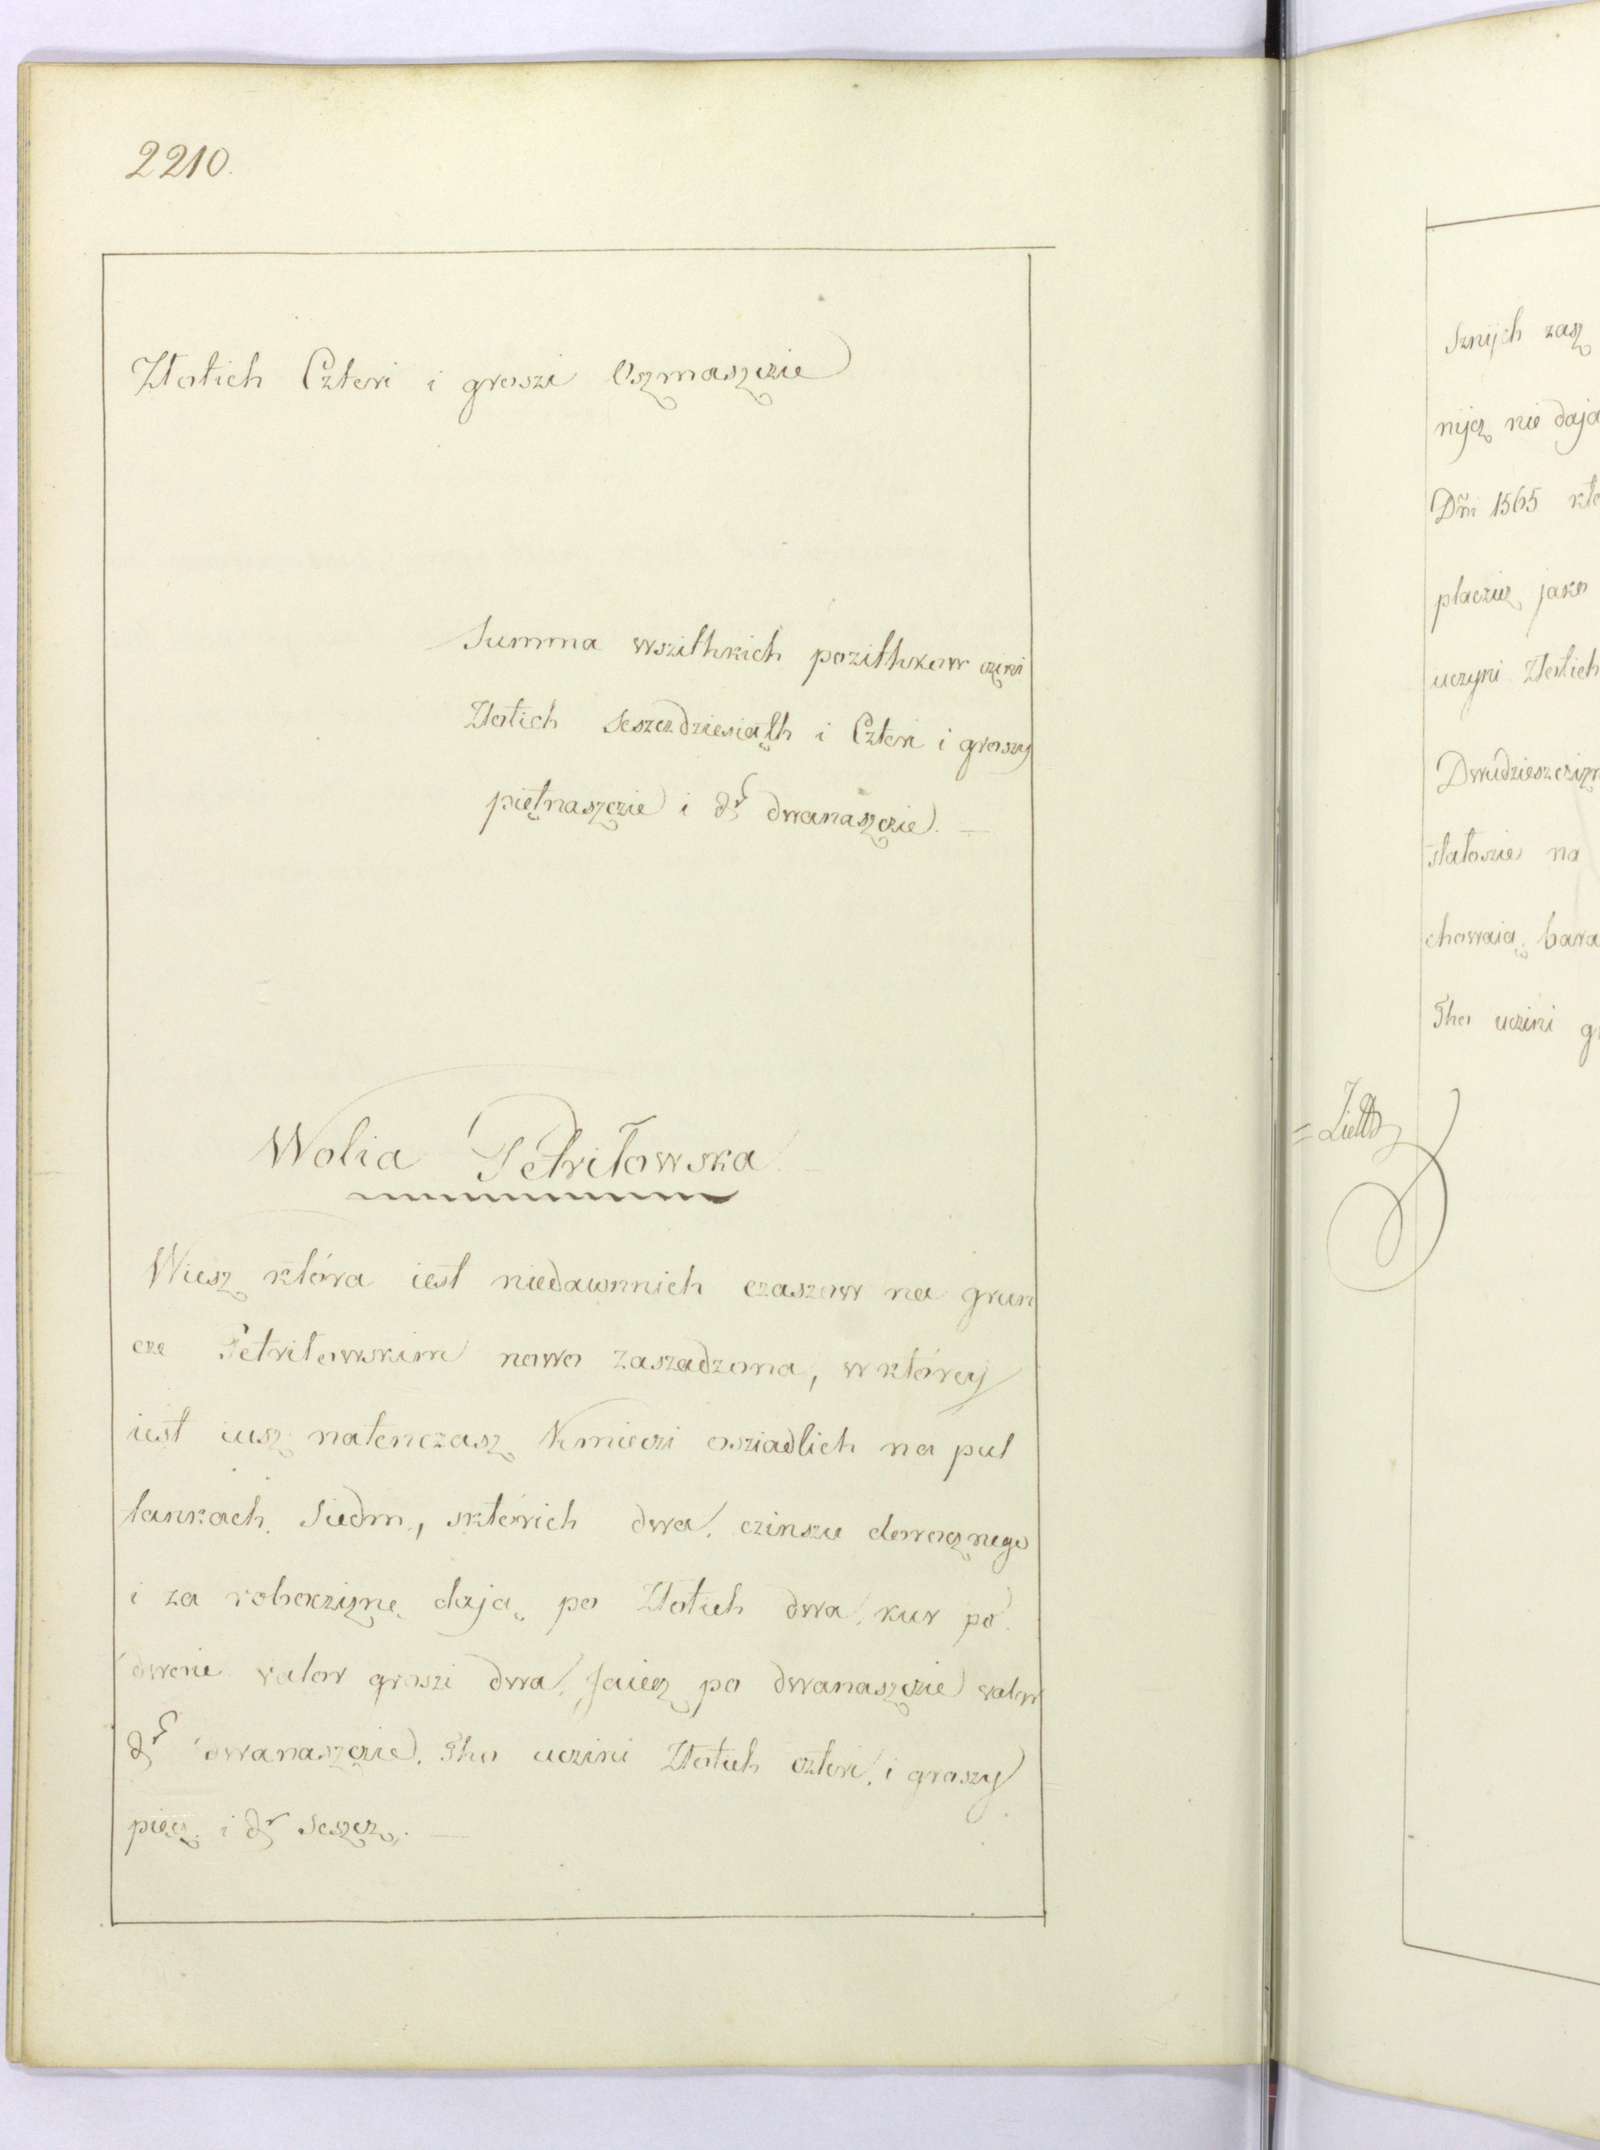 2210.
Złotich Czteri i groszi Oszmaszczie
Summa wszithkich pozithkow czini
Złotich Seszczdziesiąth i Czteri i groszy
piętnaszczie i dr dwanaszczie.
Wolia Petriłowska
Wiesz która iest niedawnnich czaszow na grun
cze Petriłowskim nowo zaszadzona, w któreij
iest iusz natenczasz Kmieczi osziadlich na pul
łankach Siedm, sktórich dwa czinszu dorocznego
i za roboczizne dają po Złotich dwa, kur po
dwoie valor groszi dwa, Jaiecz po dwanaszczie valor
dr dwanaszczie. Tho uczini Złotich czteri, i groszy
pięcz i dr Seszcz.
Sznijch zasz
nijcz nie dają
Dm̃i 1565
placzicz jako
uczyni Złotich
na
chowaią
Tho uczini